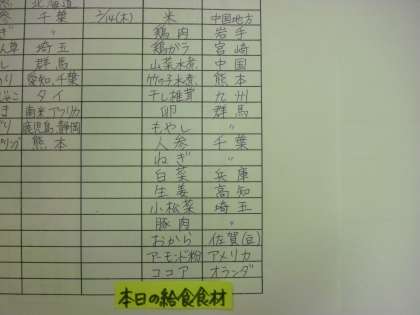 北海道
千葉 2/14(木) 米 中国地方
〃 鶏肉 岩手
埼玉 鶏ガラ 宮崎
群馬 山菜水煮 中国
愛知、千葉 竹の子水煮 熊本
タイ 干し椎茸 九州
南米、アフリカ 卵 群馬
鹿児島、静岡 もやし 〃
熊本 人参 千葉
ねぎ 〃
白菜 兵庫
生姜 高知
小松菜 埼玉
豚肉 〃
おから 佐賀(豆)
アーモンド粉 アメリカ
ココア オランダ
本日の給食食材